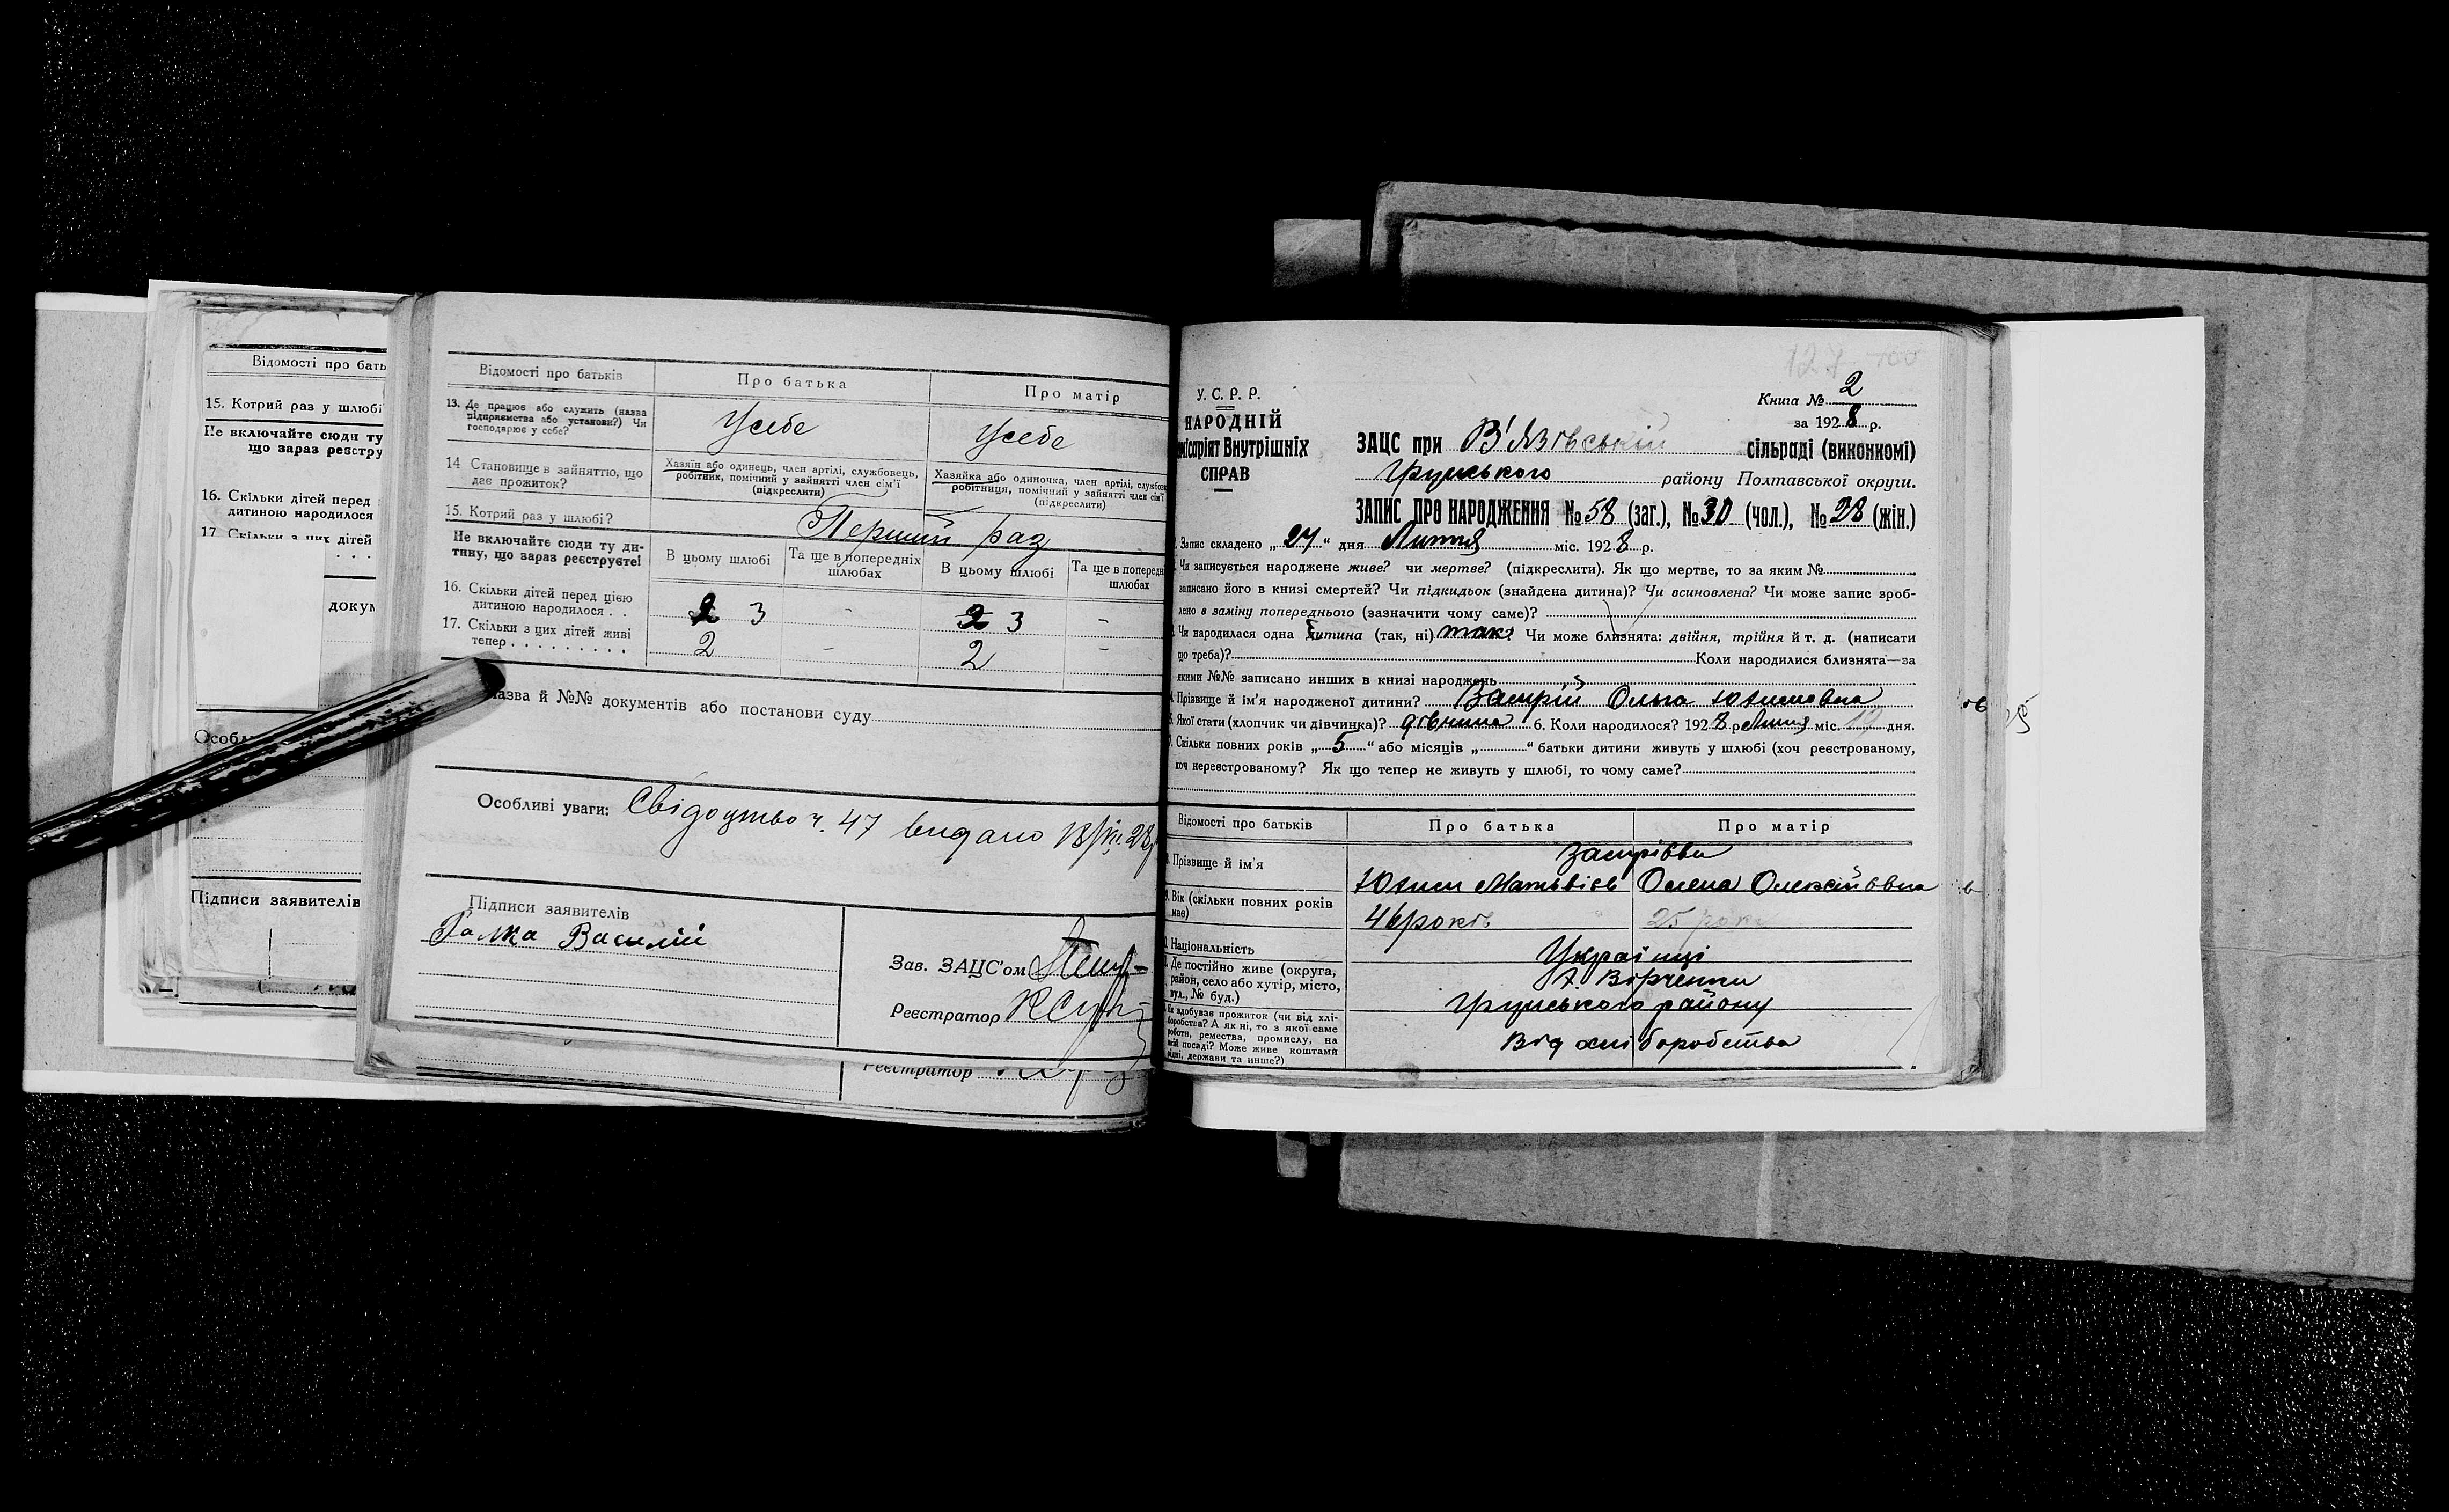 Відомості про бать
15. Котрий раз у шлюбі
Не включайте сюди ту
що зараз реєстру
16. Скільки дітей перед
дитиною народилося
17. Скільки з цих дітей
. . .
докум
Особл
Підписи заявителів
Відомості про батьків
Про батька
Про матір
13. Де працює або служить (назва
підприємства або установи?) Чи
господарює у себе?
Усебе
Усебе
14 Становище в зайняттю, що
дає прожиток?
Хазяїн або одинець, член артілі, службовець,
робітник, помічний у зайнятті член сім'ї
(підкреслити)
Хазяйка або одиночка, член артілі, службов
робітниця, помічний у зайнятті член сім'ї
(підкреслити)
15. Котрий раз у шлюбі?
Перший раз
Не включайте сюди ту ди-
тину, що зараз реєструєте!
В цьому шлюбі
Та ще в попередніх
шлюбах
В цьому шлюбі
Та ще в поперед
шлюбах
16. Скільки дітей перед цією
дитиною народилося . .
2 3 - 2 3 -
17. Скільки з цих дітей живі
тепер . . . . . . . . .
2 - 2 -
азва й №№ документів або постанови суду
Особливі уваги: Свідоцтво ч. 47 видано 18/VII.28
Підписи заявителів
Галка Василій
Зав. ЗАЦС'ом
Реєстратор
Реєстратор
127 100
У. С. Р. Р.
НАРОДНІЙ
місаріят Внутрішніх
СПРАВ
Книга № 2
за 1928 р.
ЗАЦС при В'язівській сільраді (виконкомі)
Грунського району Полтавської округи.
ЗАПИС ПРО НАРОДЖЕННЯ №58 (заг.), №30 (чол.), №28 (жін.)
Запис складено „27“ дня Липня міс. 1928 р.
Чи записується народжене живе? чи мертве? (підкреслити). Як що мертве, то за яким №
записано його в книзі смертей? Чи підкидьок (знайдена дитина)? Чи всиновлена? Чи може запис зроб-
лено в заміну попереднього (зазначити чому саме)?
Чи народилася одна дитина (так, ні) так? Чи може близнята: двійня, трійня й т. д. (написати
що треба)? Коли народилися близнята—за
якими №№ записано инших в книзі народжень
Прізвище й ім'я народженої дитини? Замрій Ольга Юхимовна
Якої статі (хлопчик чи дівчинка)? дівчина 6. Коли народилося? 1928 р Липня міс. 12 дня.
Скільки повних років „5“ або місяців „ “ батьки дитини живуть у шлюбі (хоч реєстрованому,
хоч нереєстрованому? Як що тепер не живуть у шлюбі, то чому саме?
Відомості про батьків
Про батька
Про матір
Прізвище й ім'я
Замрієви
Юхим Матьвієв
Олена Олексійовна
Вік (скільки повних років
має)
46 років
25 років
Національність
Українці
Де постійно живе (округа,
район, село або хутір, місто,
вул., № буд.)
Х. Вірченки
Грунського району
Як здобуває прожиток (чи від хлі-
боробства? А як ні, то з якої саме
роботи, ремества, промислу, на
якій посаді? Може живе коштами
рідні, держави та инше?)
Від хліборобства